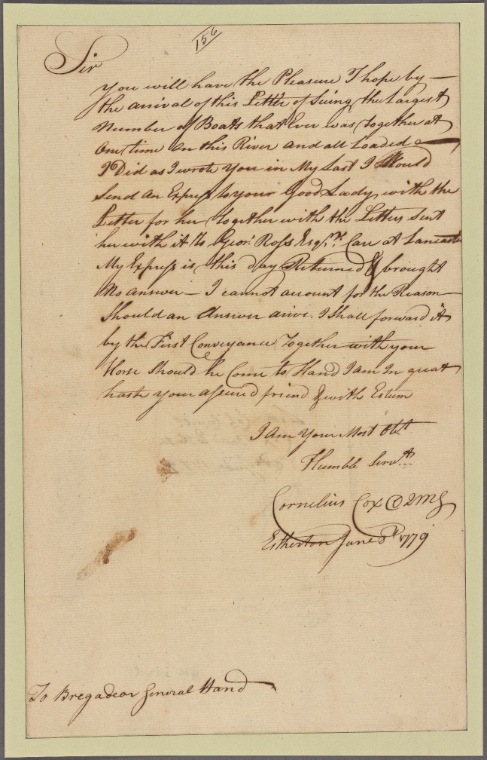 156
Sir
You will have the Pleasure I hope by —
the arrival of this Letter of Seing the Largest
Number of Boats that Ever was together at
One time On this River and all Loaded —
I Did as I wrote you in My Last I Should
Send An Express to your Good Lady, with the
Letter for her together with the Letters sent
her with it to Geor: Ross Esqr. Care at Lancaster
My Express is, this day Returned & brought
No answer — I cannot account for the Reason
Should an Answer arive. I Shall forward it
by the First Conveyance Together with your
Horse Should he Come to Hand I am In great
hast your assured friend & with Esteem
I am Your Most Obt
Humble Servt.
Cornelius Cox
Estherton June 1779
To Bregadeor General Hand